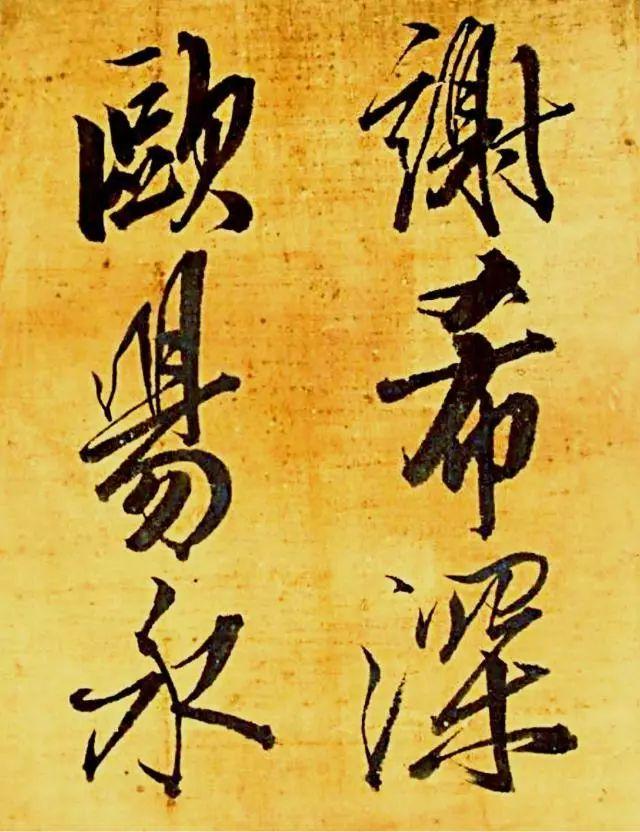 謝希深
歐陽永